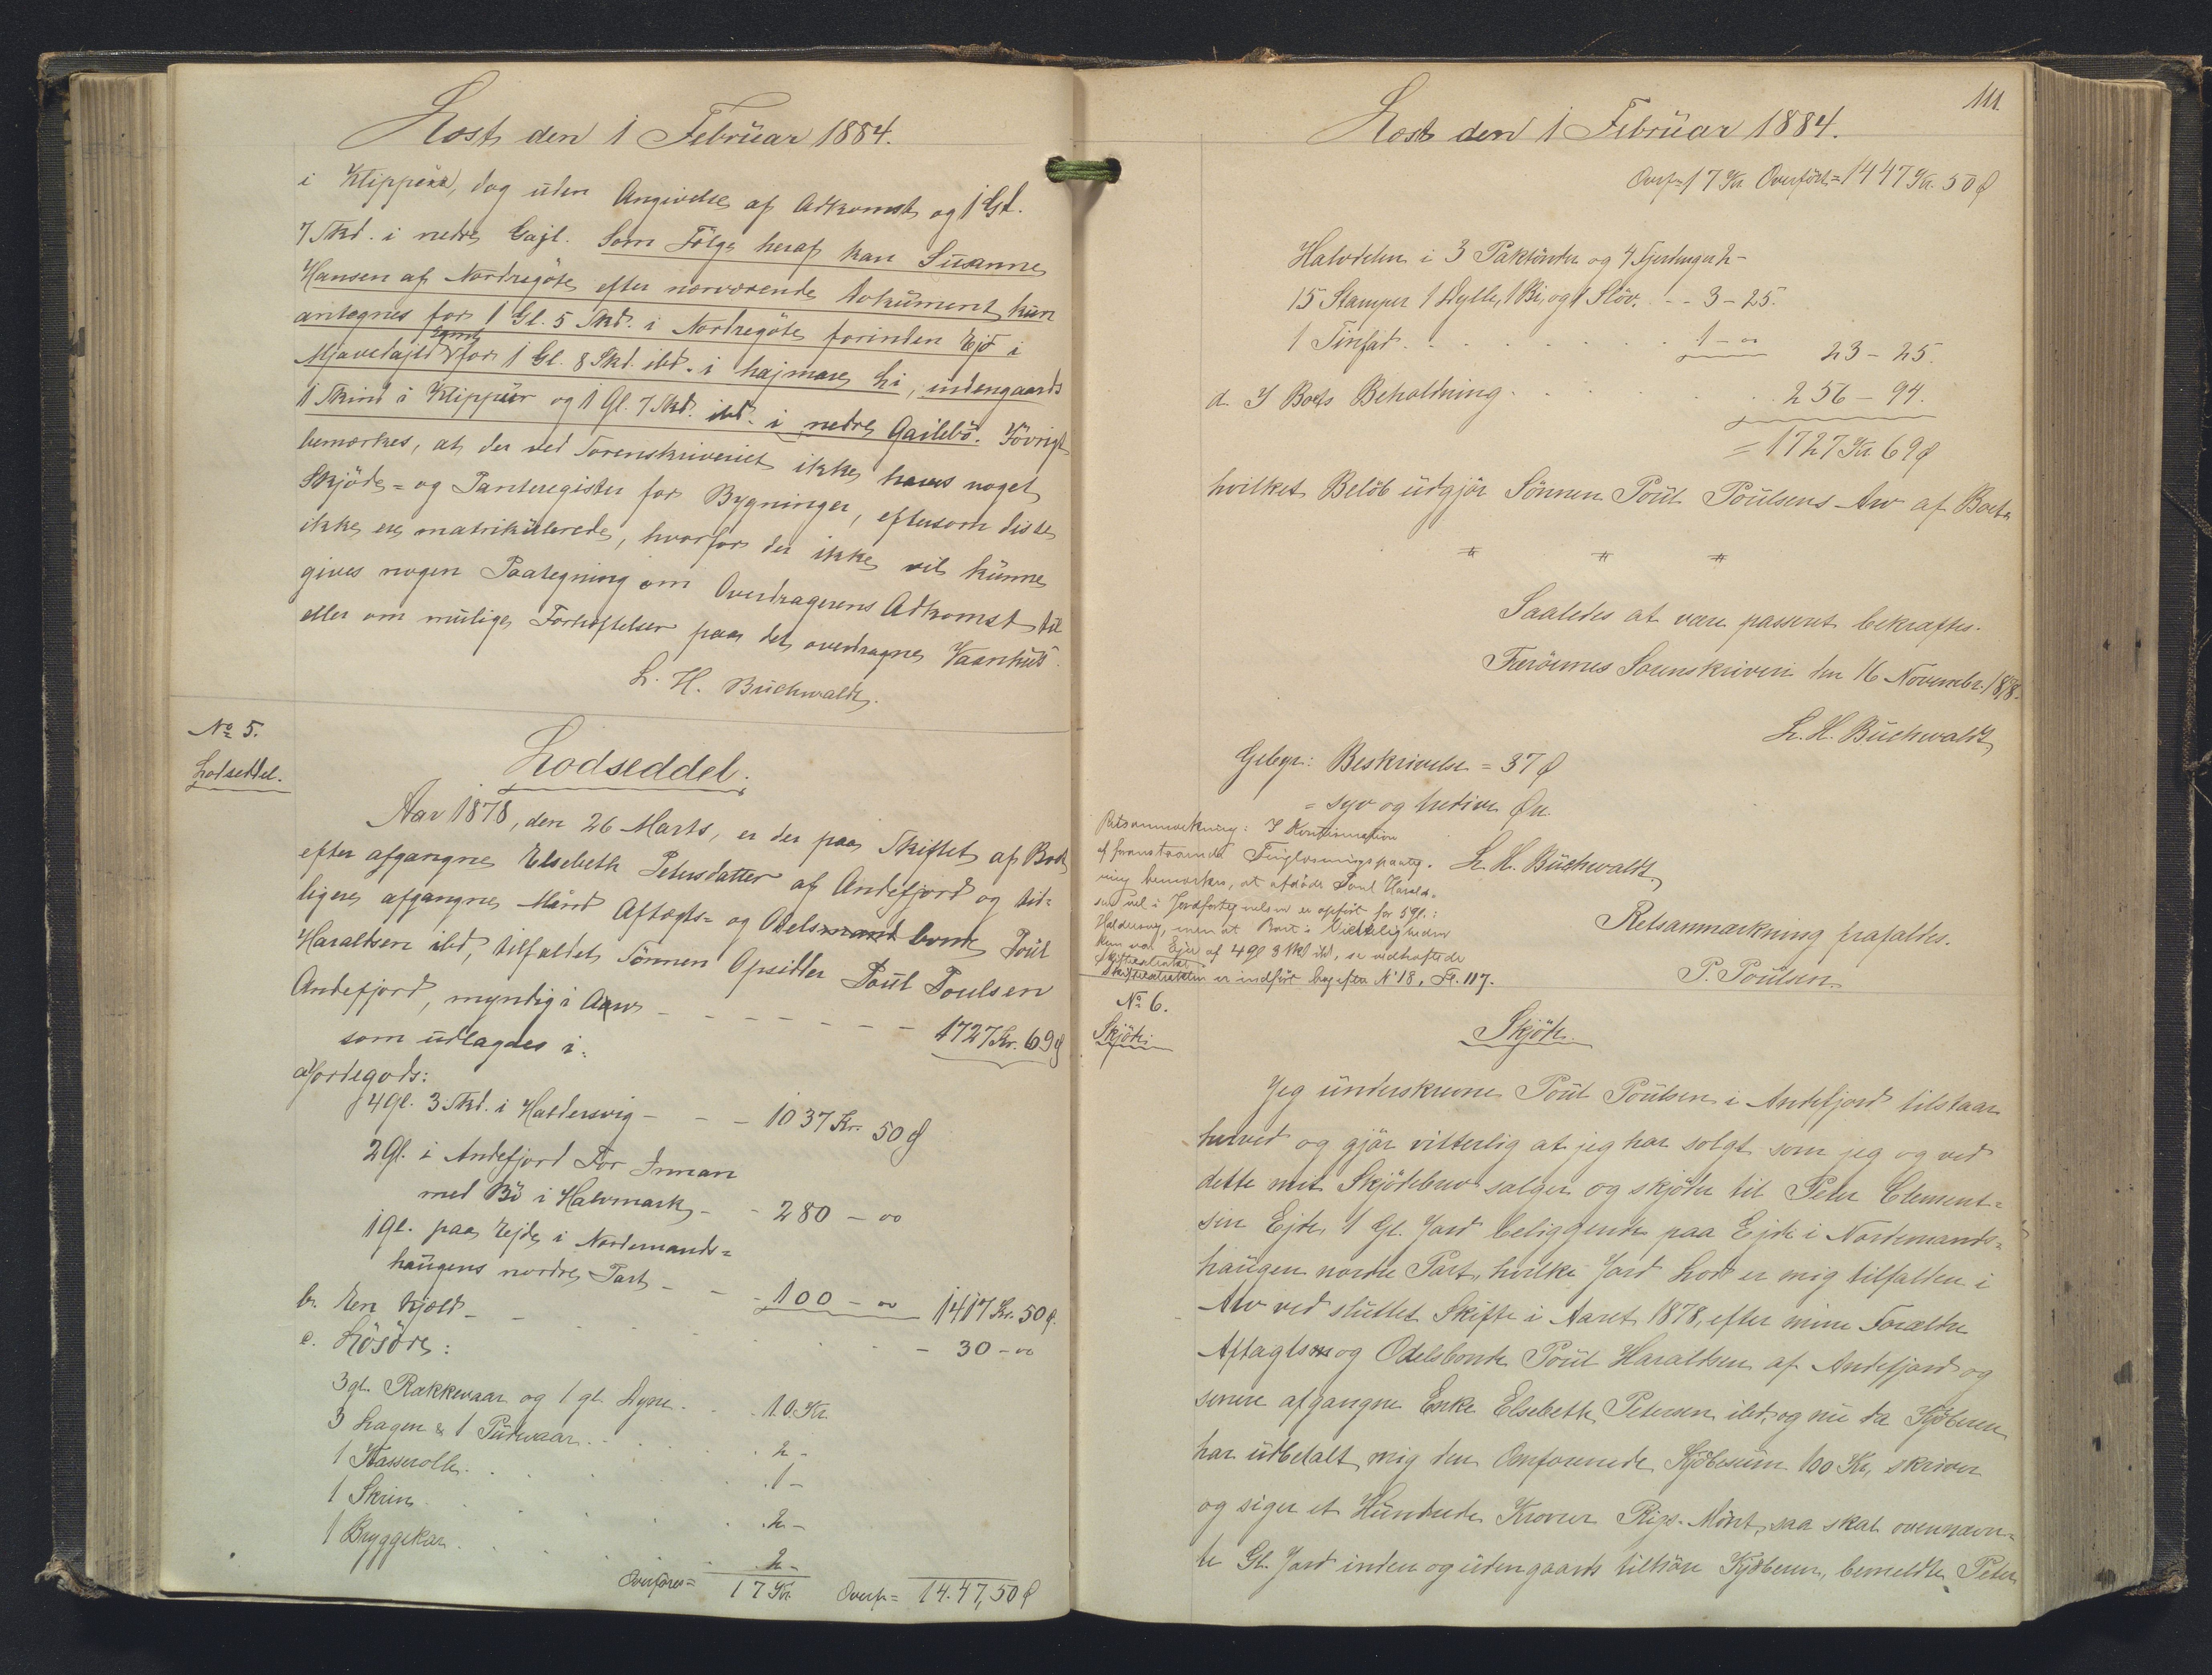 Læst den 1 Februar 1884.
i Klippera, dog uden Angivelse af Adkomst og 1 Gl.
7 Skd. i nedre Gajl. Som Følge heraf kan Susanne
Hansen af Nordregøte efter nærværende Dokument kun
antegnes for 1 Gl. 5 Skd. i Nordregøte forinden Ejd i
Mjavedajld samt for 1 Gl. 8 Skd. ibd. i hajmare Li, indengaards
1 Skind i Klippur og 1 Gl. 7 Skd. ibd. i nedre Gailebø. Iøvrigt
bemærkes, at der ved Sorenskriveriet ikke haves noget
Skjøde- og Panteregister for Bygninger, eftersom disse
ikke ere matrikulerede, hvorfor der ikke vil kunne
gives nogen Paategning om Overdragerens Adkomst til
eller om mulige Forhæftelser paa det overdragne Vaanhus.
L. H. Buchwaldt.
No 5.
Lodseddel.
Lodseddel.
Aar 1878, den 26 Marts, er der paa Skiftet af Boet
efter afgangne Elsebeth Petersdatter af Andefjord og tid-
ligere afgangne Mand Aftægts- og Odelsmand bonde Poul
Haraldsen ibd, tilfaldet Sønnen Opsidder Poul Poulsen
Andefjord, myndig i Arv - - - - - - - 1727 Kr. 69 Ø
som udlagdes i:
a Jordegods:
4 Gl. 3 Skd. i Haldersvig - - - 1037 Kr. 50 Ø
2 Gl. i Andefjord For Innan
med Bø i Halvmark - - 280 - 00
1 Gl. paa Ejde i Nordemands-
haugens nordre Part - - - 100 - 00 1417 Kr. 50 Ø.
b. Een Kjøld - - - 30 - 00
c. Løsøre:
3 gl. Rækkevaar og 1 gl. Dyne . . . 10 Kr.
3 Lagen & 1 Pudevaar . . . 2 -
1 Kasserolle . . . 1 -
1 Skrin . . . 2 -
1 Bryggekar . . . 2 -
Overføres= 17 Kr. Overf= 14.47,50 Ø
111.
Læst den 1 Februar 1884.
Overf= 17 Kr. Overført= 1447 Kr. 50 Ø
Halvdelen i 3 Paktønder og 4 Fjerdinger 2 -
15 Stamper 1 Dylle, 1 Bi, og 1 Sløv. - - 3 - 25.
1 Tinfad . . . 1 - 00 23 - 25.
d. I Boets Beholdning . . . 256 - 94.
= 1727 Kr. 69 Ø
hvilket Beløb udgjør Sønnen Poul Poulsens Arv af Boet.
Saaledes at være passeret bekræftes.
Færøernes Sorenskriveri den 16 Novembr. 1878.
L. H. Buchwaldt
Gebyr: Beskrivelse = 37 Ø
= syv og tredive Øre.
L. H. Buchwaldt
Retsanmærkning: I Kontinuation
af foranstaaende Tinglæsningspaateg-
ning bemærkes, at afdøde Poul Harald-
sen vel i Jordfortegnelsen er opført for 5 gl. i
Haldersvig, men at Boet i Virkeligheden
kun var Ejer af 4 gl 3 Skd ibd, se vedhæftede
Skifteextrakt.
Skifteextrakten er indført bag efter No 18, Fl. 117.
Retsanmærkning frafaldes.
P. Poulsen
No 6.
Skjøde.
Skjøde.
Jeg underskrevne Poul Poulsen i Andefjord tilstaar
herved og gjør vitterlig at jeg har solgt som jeg og ved
dette mit Skjødebrev sælger og skjøder til Peter Clement-
sen Ejde, 1 Gl. Jord beliggende paa Ejde i Nordemands-
haugen nordre Part, hvilke Jord Lod er mig tilfalden i
Arv ved sluttet Skifte i Aaret 1878, efter mine Forældre
Aftægts og Odelsbonde Poul Haraldsen af Andefjord og
senere afgangne Enke Elsebeth Petersen ibd, og nu da Kjøberen
har udbetalt mig den Omforenede Kjøbesum 100 Kr, skriver
og siger et Hundrede Kroner Rigs-Mønt, saa skal ovennævn-
te Gl. Jord inden og udengaards tilhøre Kjøberen, bemeldte Peter